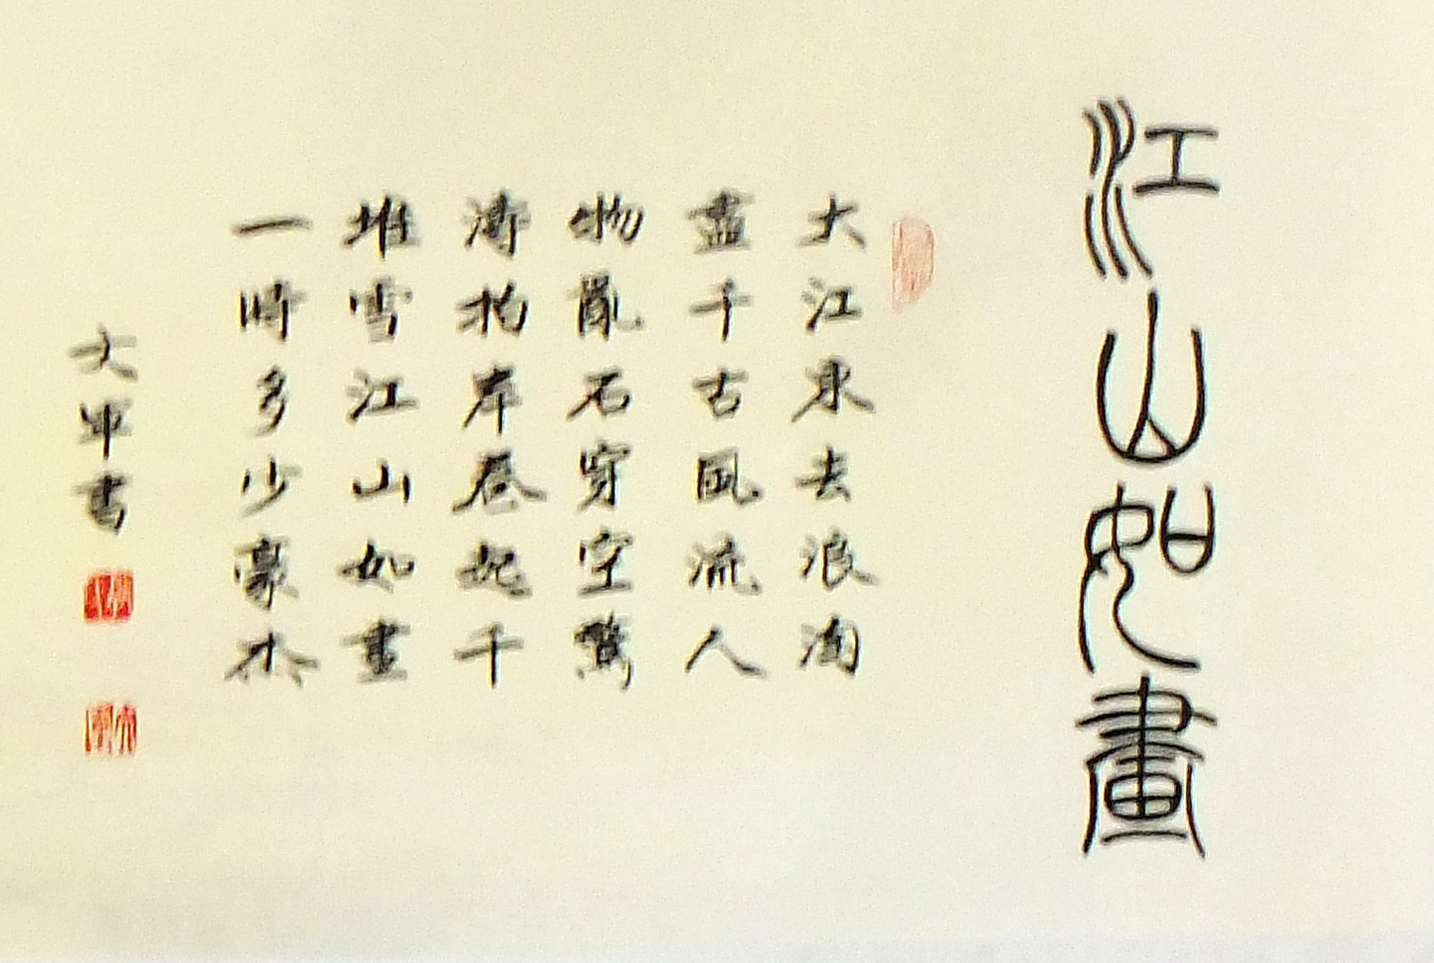 江山如畫
大江東去浪淘
盡千古風流人
物亂石穿空驚
濤拍岸卷起千
堆雪江山如畫
一時多少豪杰
文軍書